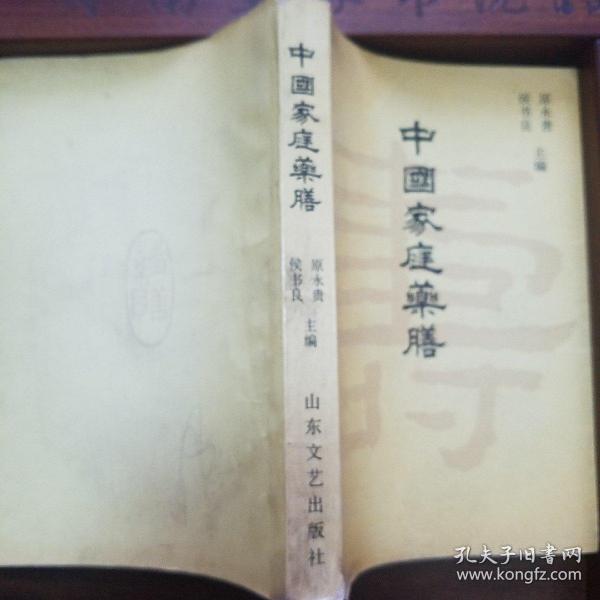 中國家庭藥膳
原永贵
侯书良
主编
山东文艺出版社
原永贵
侯书良
主编
中國家庭藥膳
壽
孔夫子旧书网
www.kongfz.com